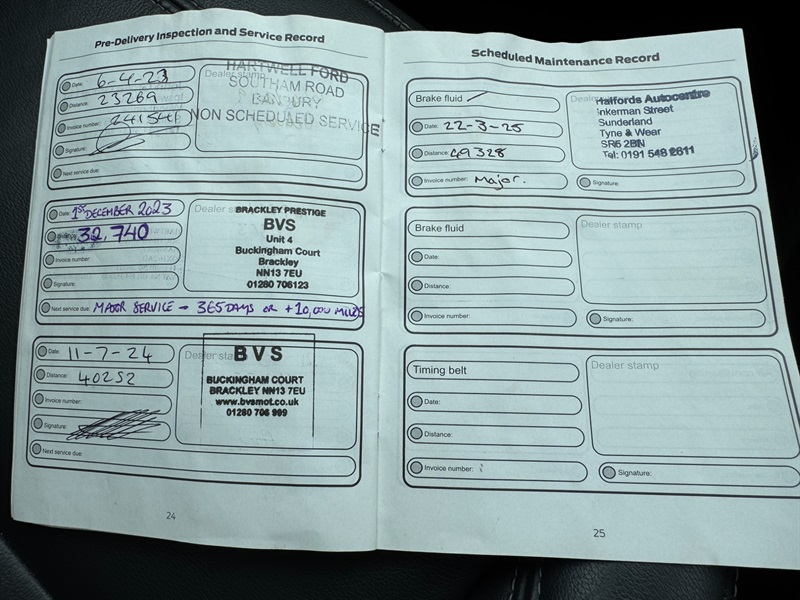 Pre-Delivery Inspection and Service Record
Date: 6-4-23
Distance: 23269
Invoice number: 241546
Signature:
Next service due:
Dealer stamp
HARTWELL FORD
SOUTHAM ROAD
BANBURY
NON SCHEDULED SERVICE
Date: 1ST DECEMBER 2023
32,740
Invoice number
Signature:
Next service due: MAJOR SERVICE - 365 DAYS OR +10,000 MILES
Dealer stamp
BRACKLEY PRESTIGE
BVS
Unit 4
Buckingham Court
Brackley
NN13 7EU
01280 706123
Date: 11-7-24
Distance: 40252
Invoice number:
Signature:
Next service due:
Dealer stamp
BVS
BUCKINGHAM COURT
BRACKLEY NN13 7EU
www.bvsmot.co.uk
01280 706 999
24
Scheduled Maintenance Record
Brake fluid
Date: 22-3-25
Distance: 49328
Invoice number: Major.
Dealer
Halfords Autocentre
Inkerman Street
Sunderland
Tyne & Wear
SR5 2BN
Tel: 0191 548 2611
Signature:
Brake fluid
Date:
Distance:
Invoice number:
Dealer stamp
Signature:
Timing belt
Date:
Distance:
Invoice number:
Dealer stamp
Signature:
25